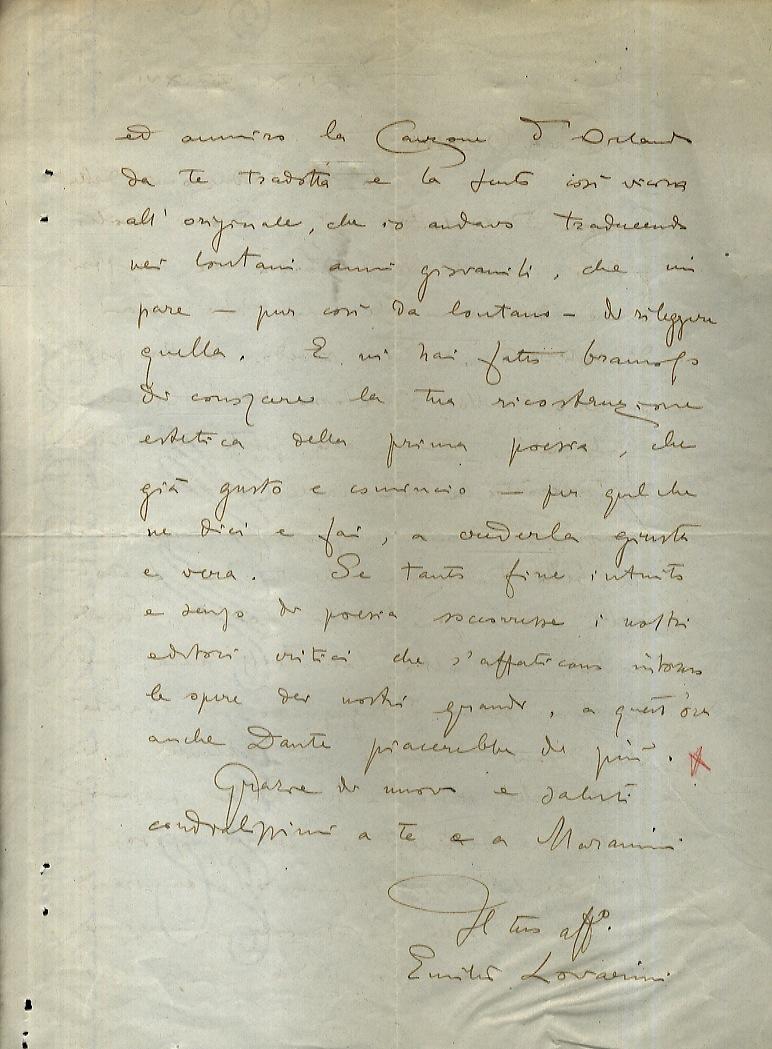 ed ammiro la Canzone d'Orlando
da te tradotta e la sento così vicina
all'originale, che io andavo traducendo
nei lontani anni giovanili, che mi
pare – pur così da lontano – di rileggere
quella. E mi hai fatto bramoso
di conoscere la tua ricostruzione
estetica della prima poesia, che
già gusto e comincio – per quel che
ne dici e fai, a crederla giusta
e vera. Se tanto fine intuito
e senso di poesia soccorresse i nostri
editori critici che s'affaticano intorno
le opere dei nostri grandi, a quest'ora
anche Dante piacerebbe di più.
Grazie di nuovo e saluti
cordialissimi a te e a Maranini
Il tuo affº.
Emilio Lovarini